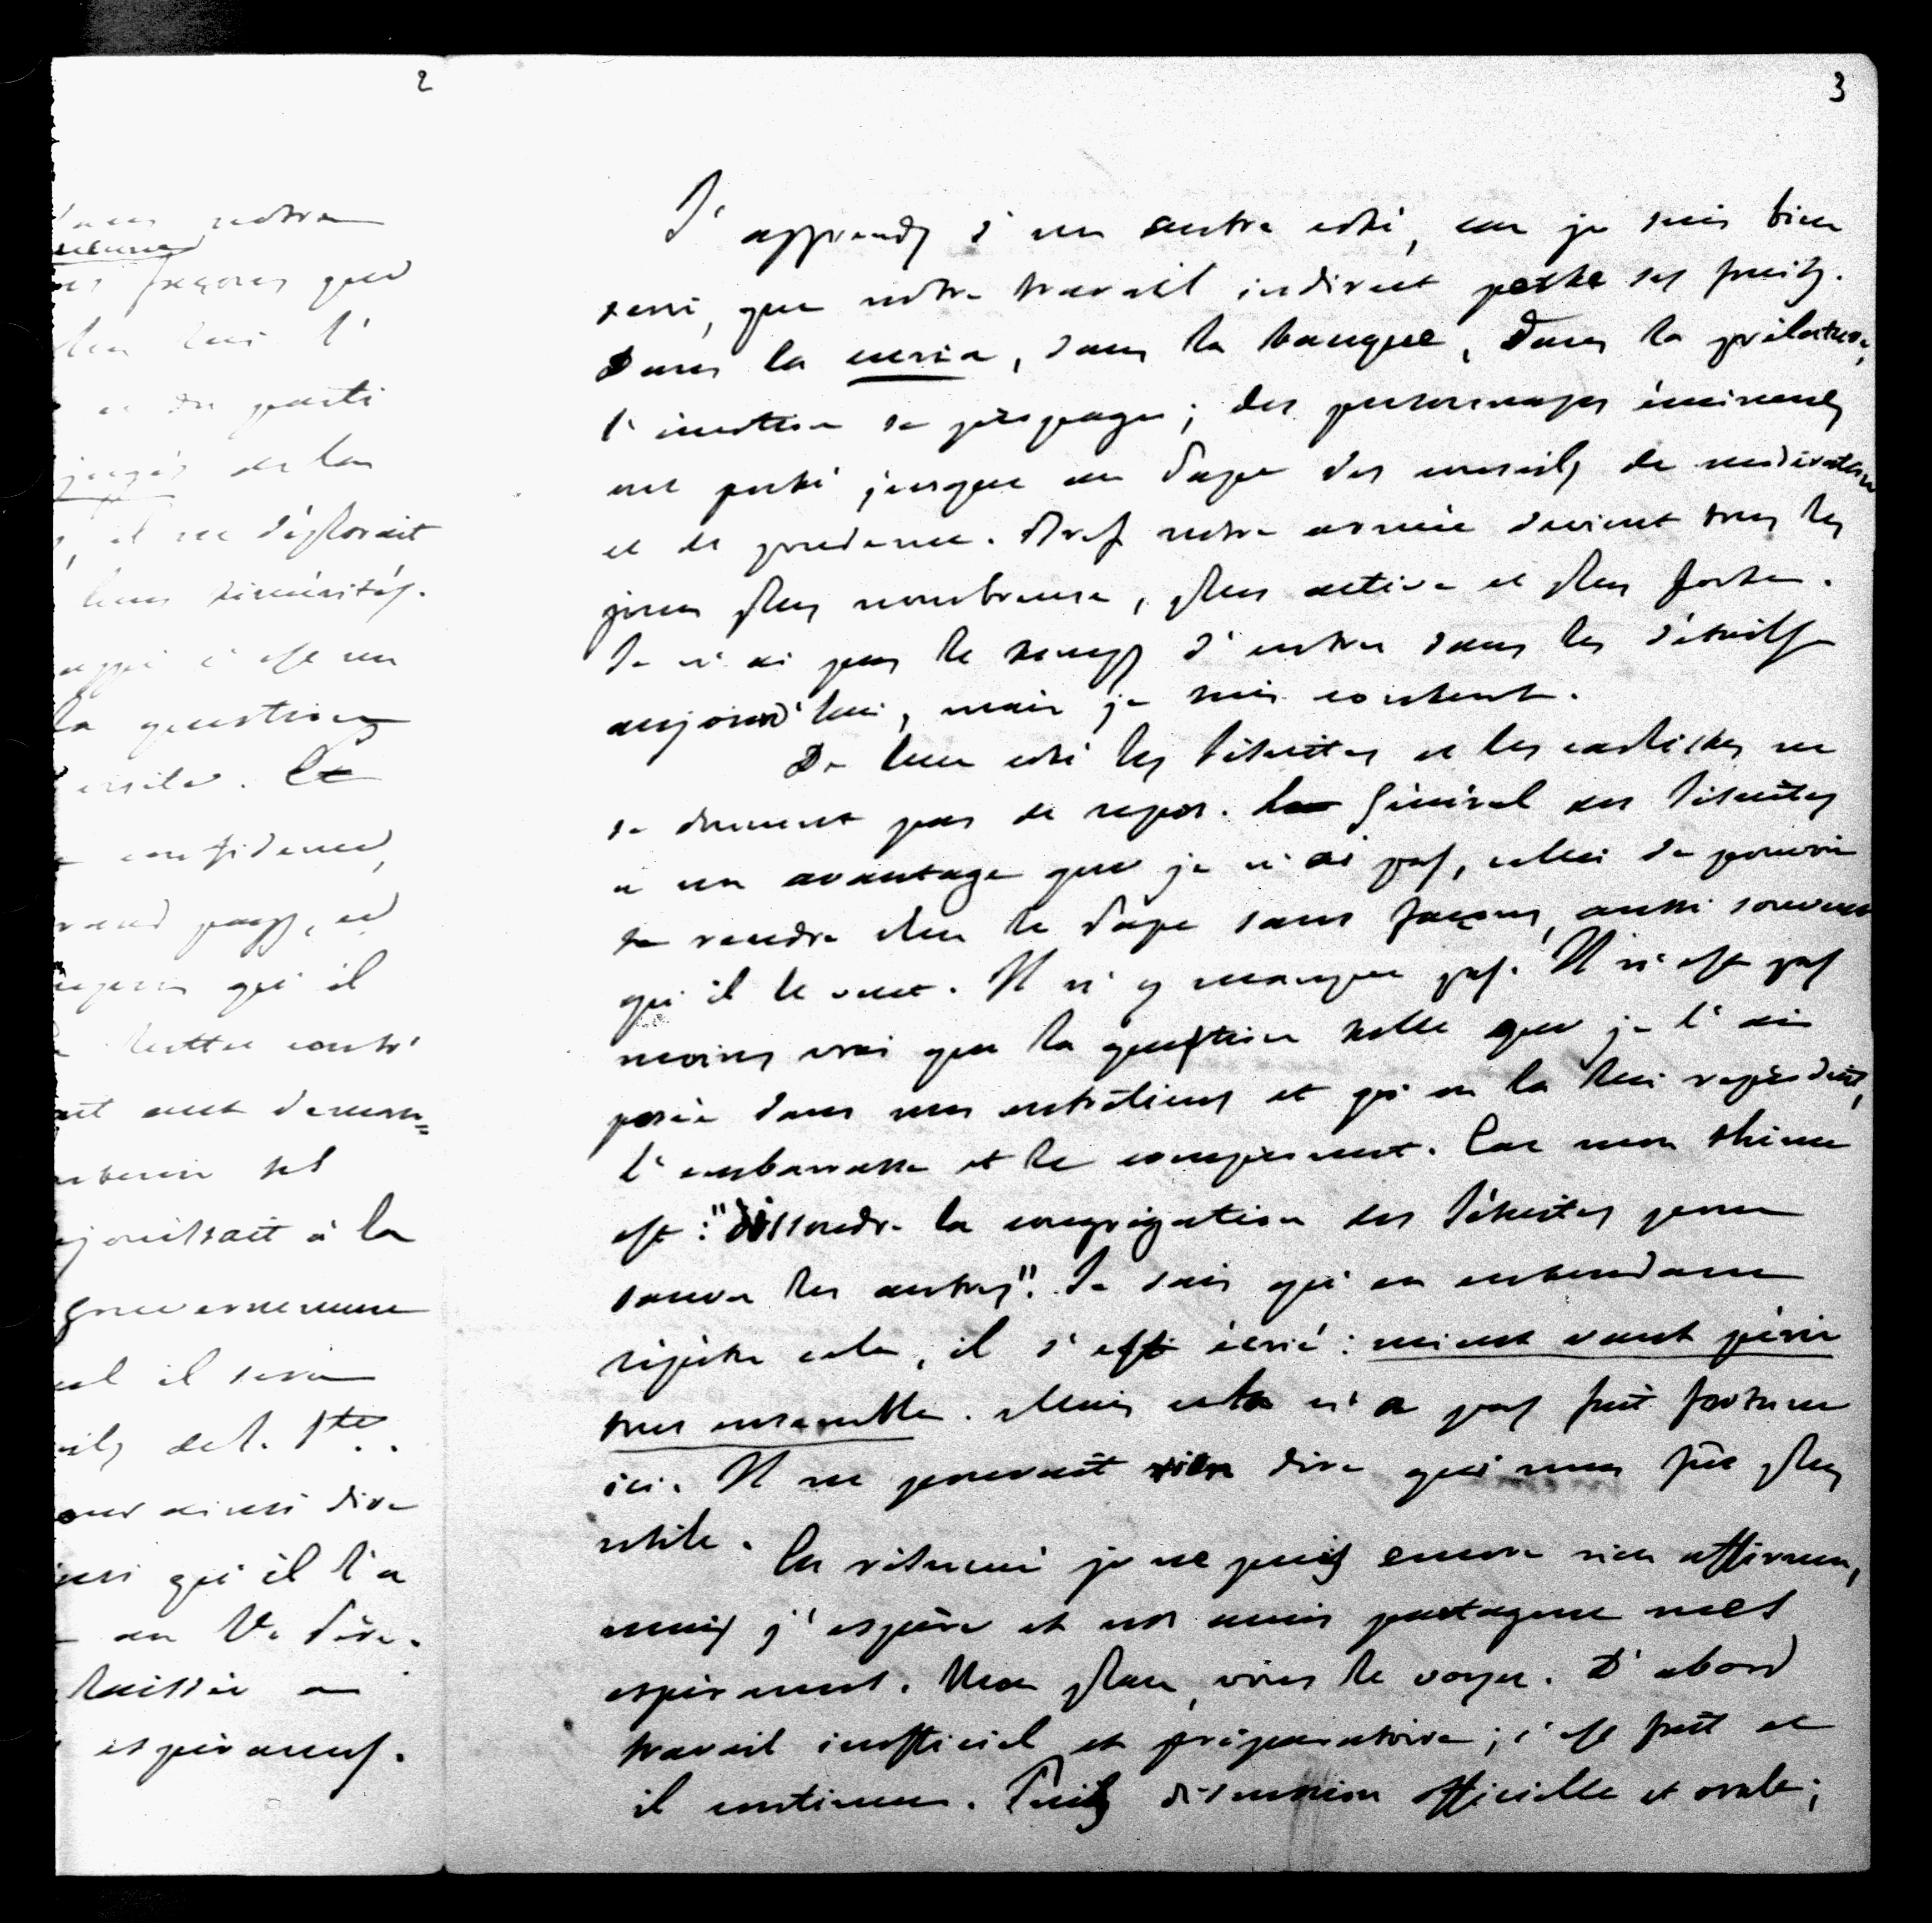 2
notre
façons que
lui l'
et du parti
jugés de la
, il ne déplorait
leurs témérités.
c'est un
la question
Et
confidence,
pays, et
qu'il
lettre
ait
tel
réjouissait à la
gouvernement
il sera
de la Ste..
ainsi dire
qu'il l'a
au St. Père.
laissée
espérances.
3
J'apprends d'un autre côté, car je suis bien
servi, que notre travail indirect porte ses fruits.
Dans la curia, dans la banque, dans la prélature,
l'émotion se propage ; des personnages éminents
ont porté jusque au Pape des conseils de modération
et de prudence. Bref notre armée devient tous les
jours plus nombreuse, plus active et plus forte.
Je n'ai pas le temps d'entrer dans les détails
aujourd'hui, mais je suis content.
De leur côté les Jésuites et les carlistes ne
se donnent pas de repos. Le Général des Jésuites
a un avantage que je n'ai pas, celui de pouvoir
se rendre chez le Pape sans façons, aussi souvent
qu'il le veut. Il n'y manque pas. Il n'est pas
moins vrai que la question telle que je l'ai
posée dans mes entretiens et qu'on la lui reproduit,
l'embarrasse et le compromet. Car mon thème
est : "dissoudre la congrégation des Jésuites pour
sauver les autres". Je sais qu'en entendant
répéter cela, il s'est écrié : mieux vaut périr
tous ensemble. Mais cela n'a pas fait fortune
ici. Il ne pouvait rien dire qui nous fût plus
utile.
En résumé je ne puis encore rien affirmer,
mais j'espère et nos amis partagent mes
espérances. Mon plan, vous le voyez. D'abord
travail inofficiel et préparatoire ; c'est fait et
il continue. Puis discussion officielle et orale ;